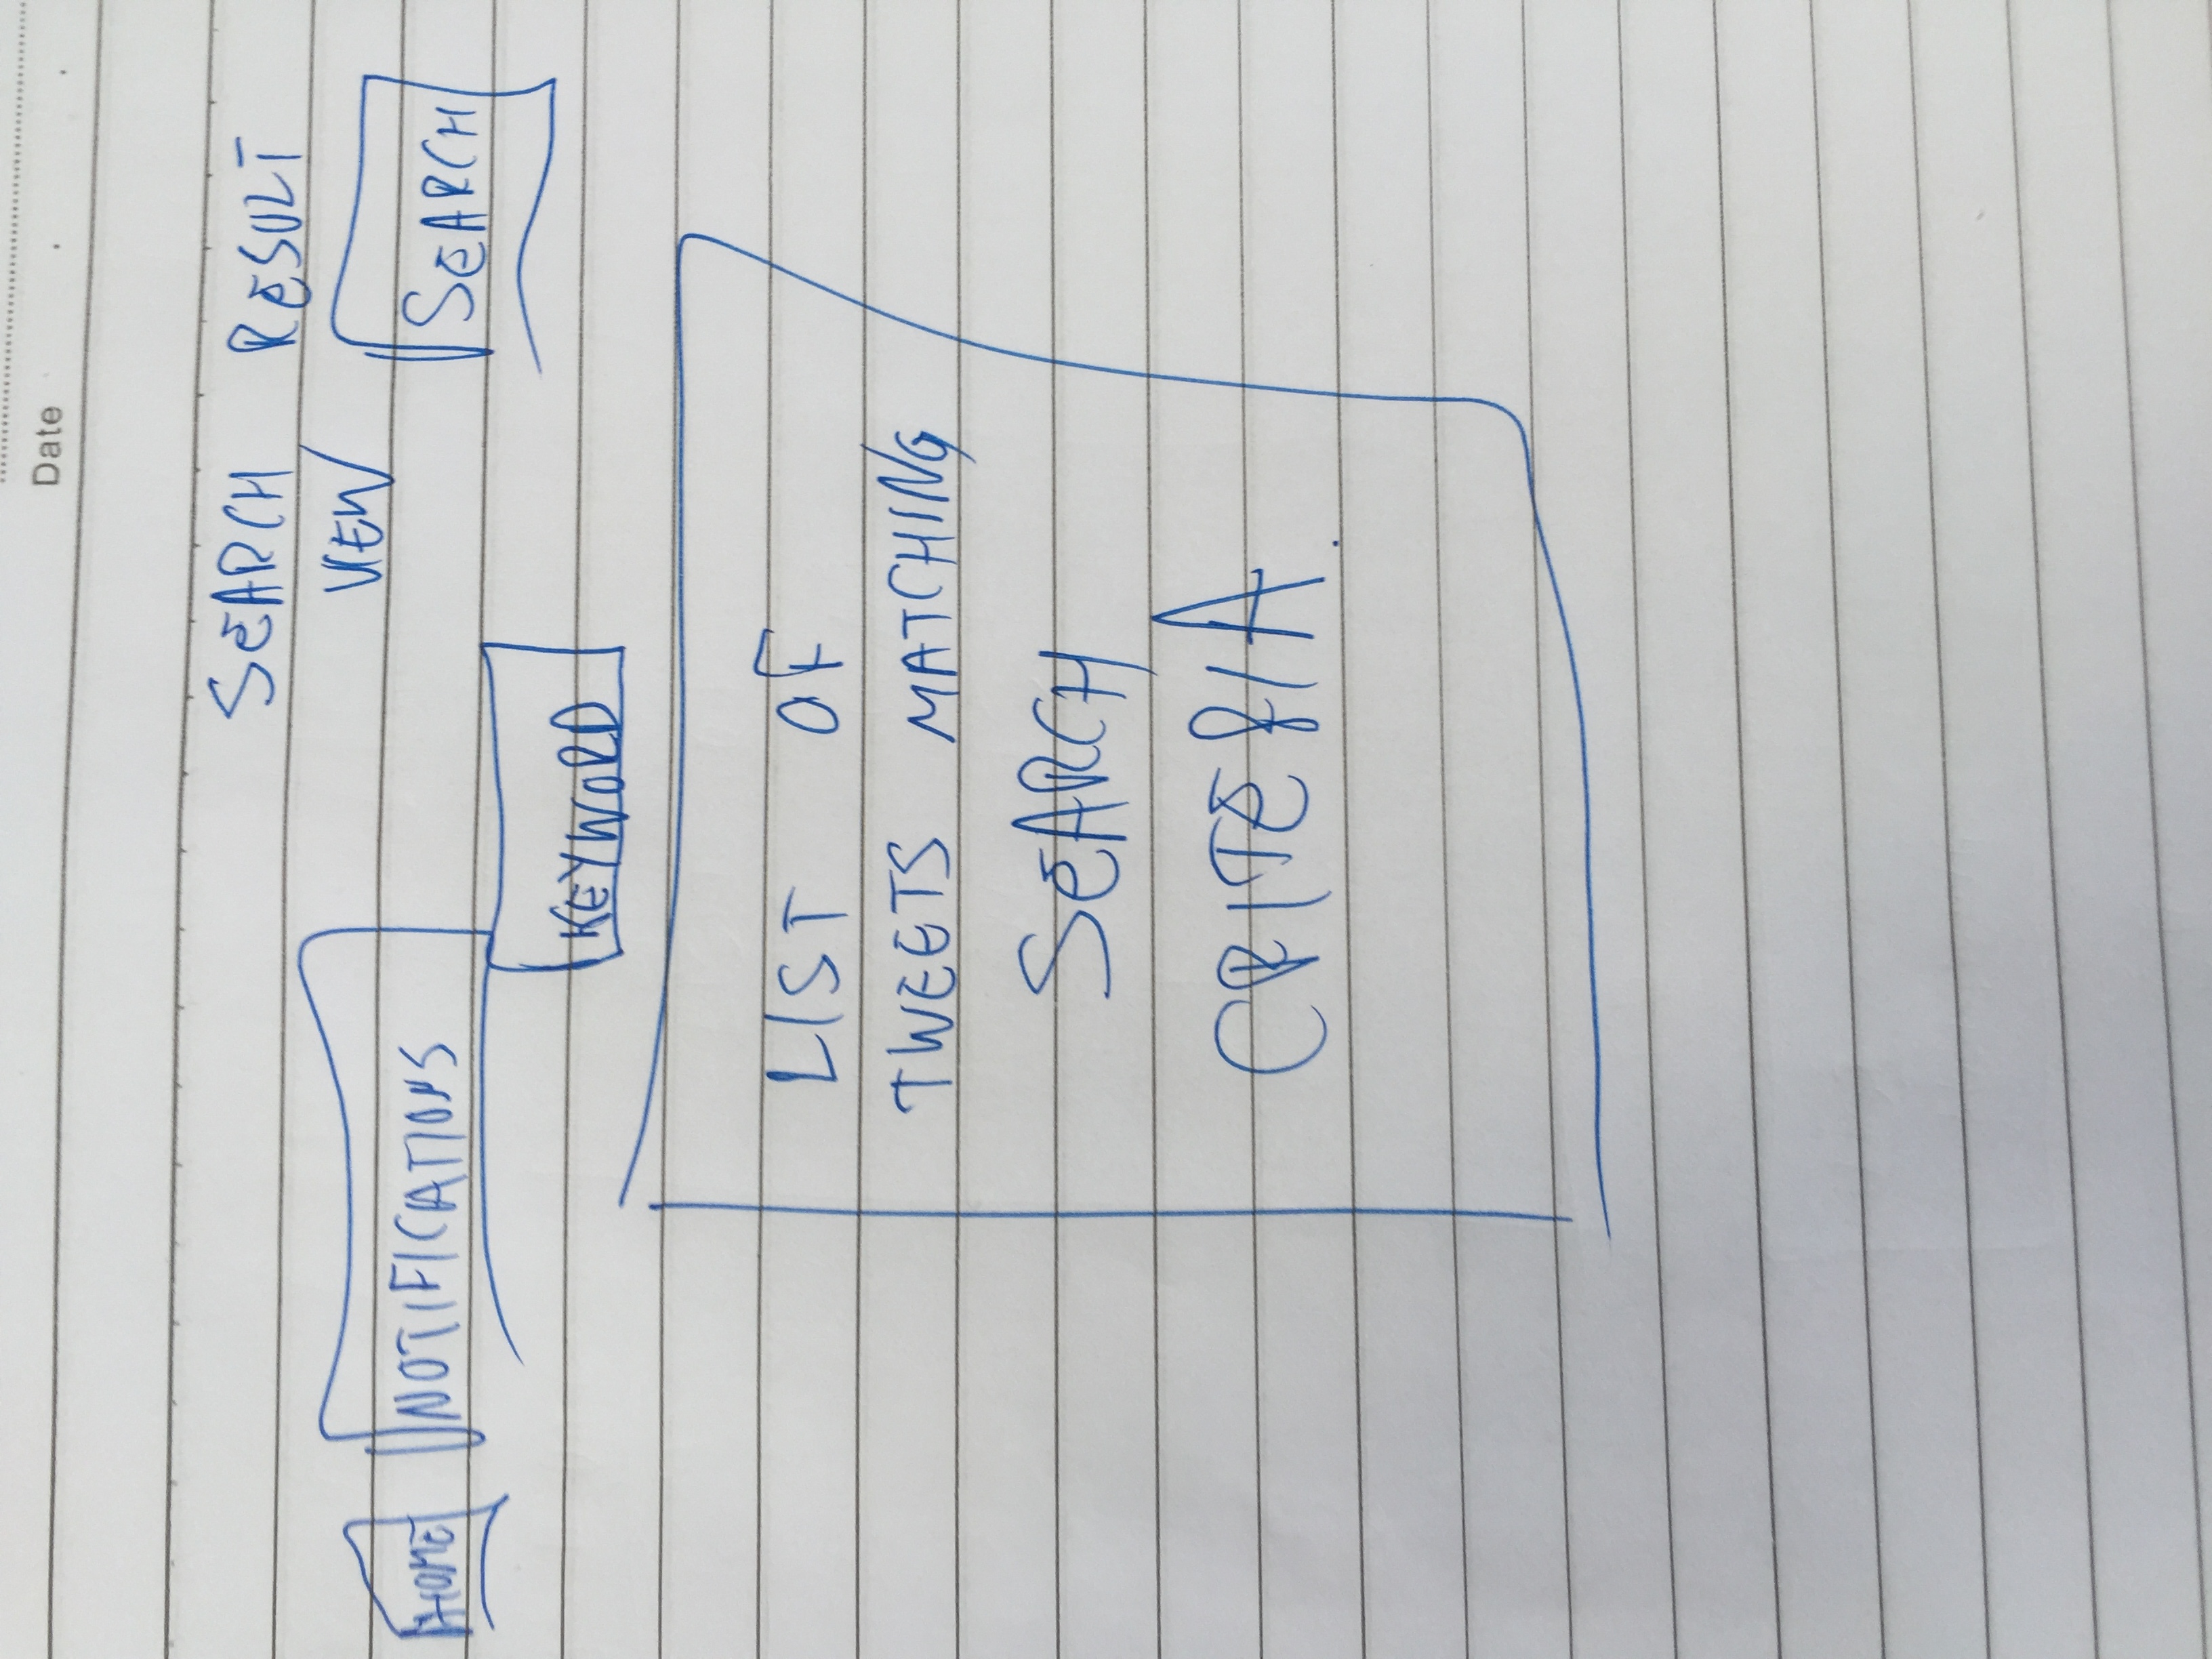 Date
SEARCH RESULT
VIEW
HOME NOTIFICATIONS SEARCH
KEYWORD
LIST OF
TWEETS MATCHING
SEARCH
CRITERIA.